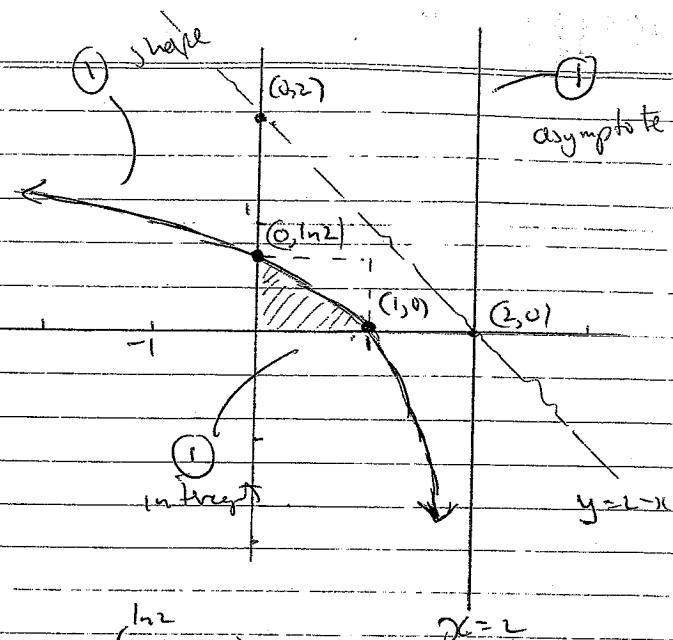 ① shape
(0,2)
①
asymptote
1
(0, ln2)
(1,0)
(2,0)
-1
1
①
intercept
y=2-x
ln2
x=2